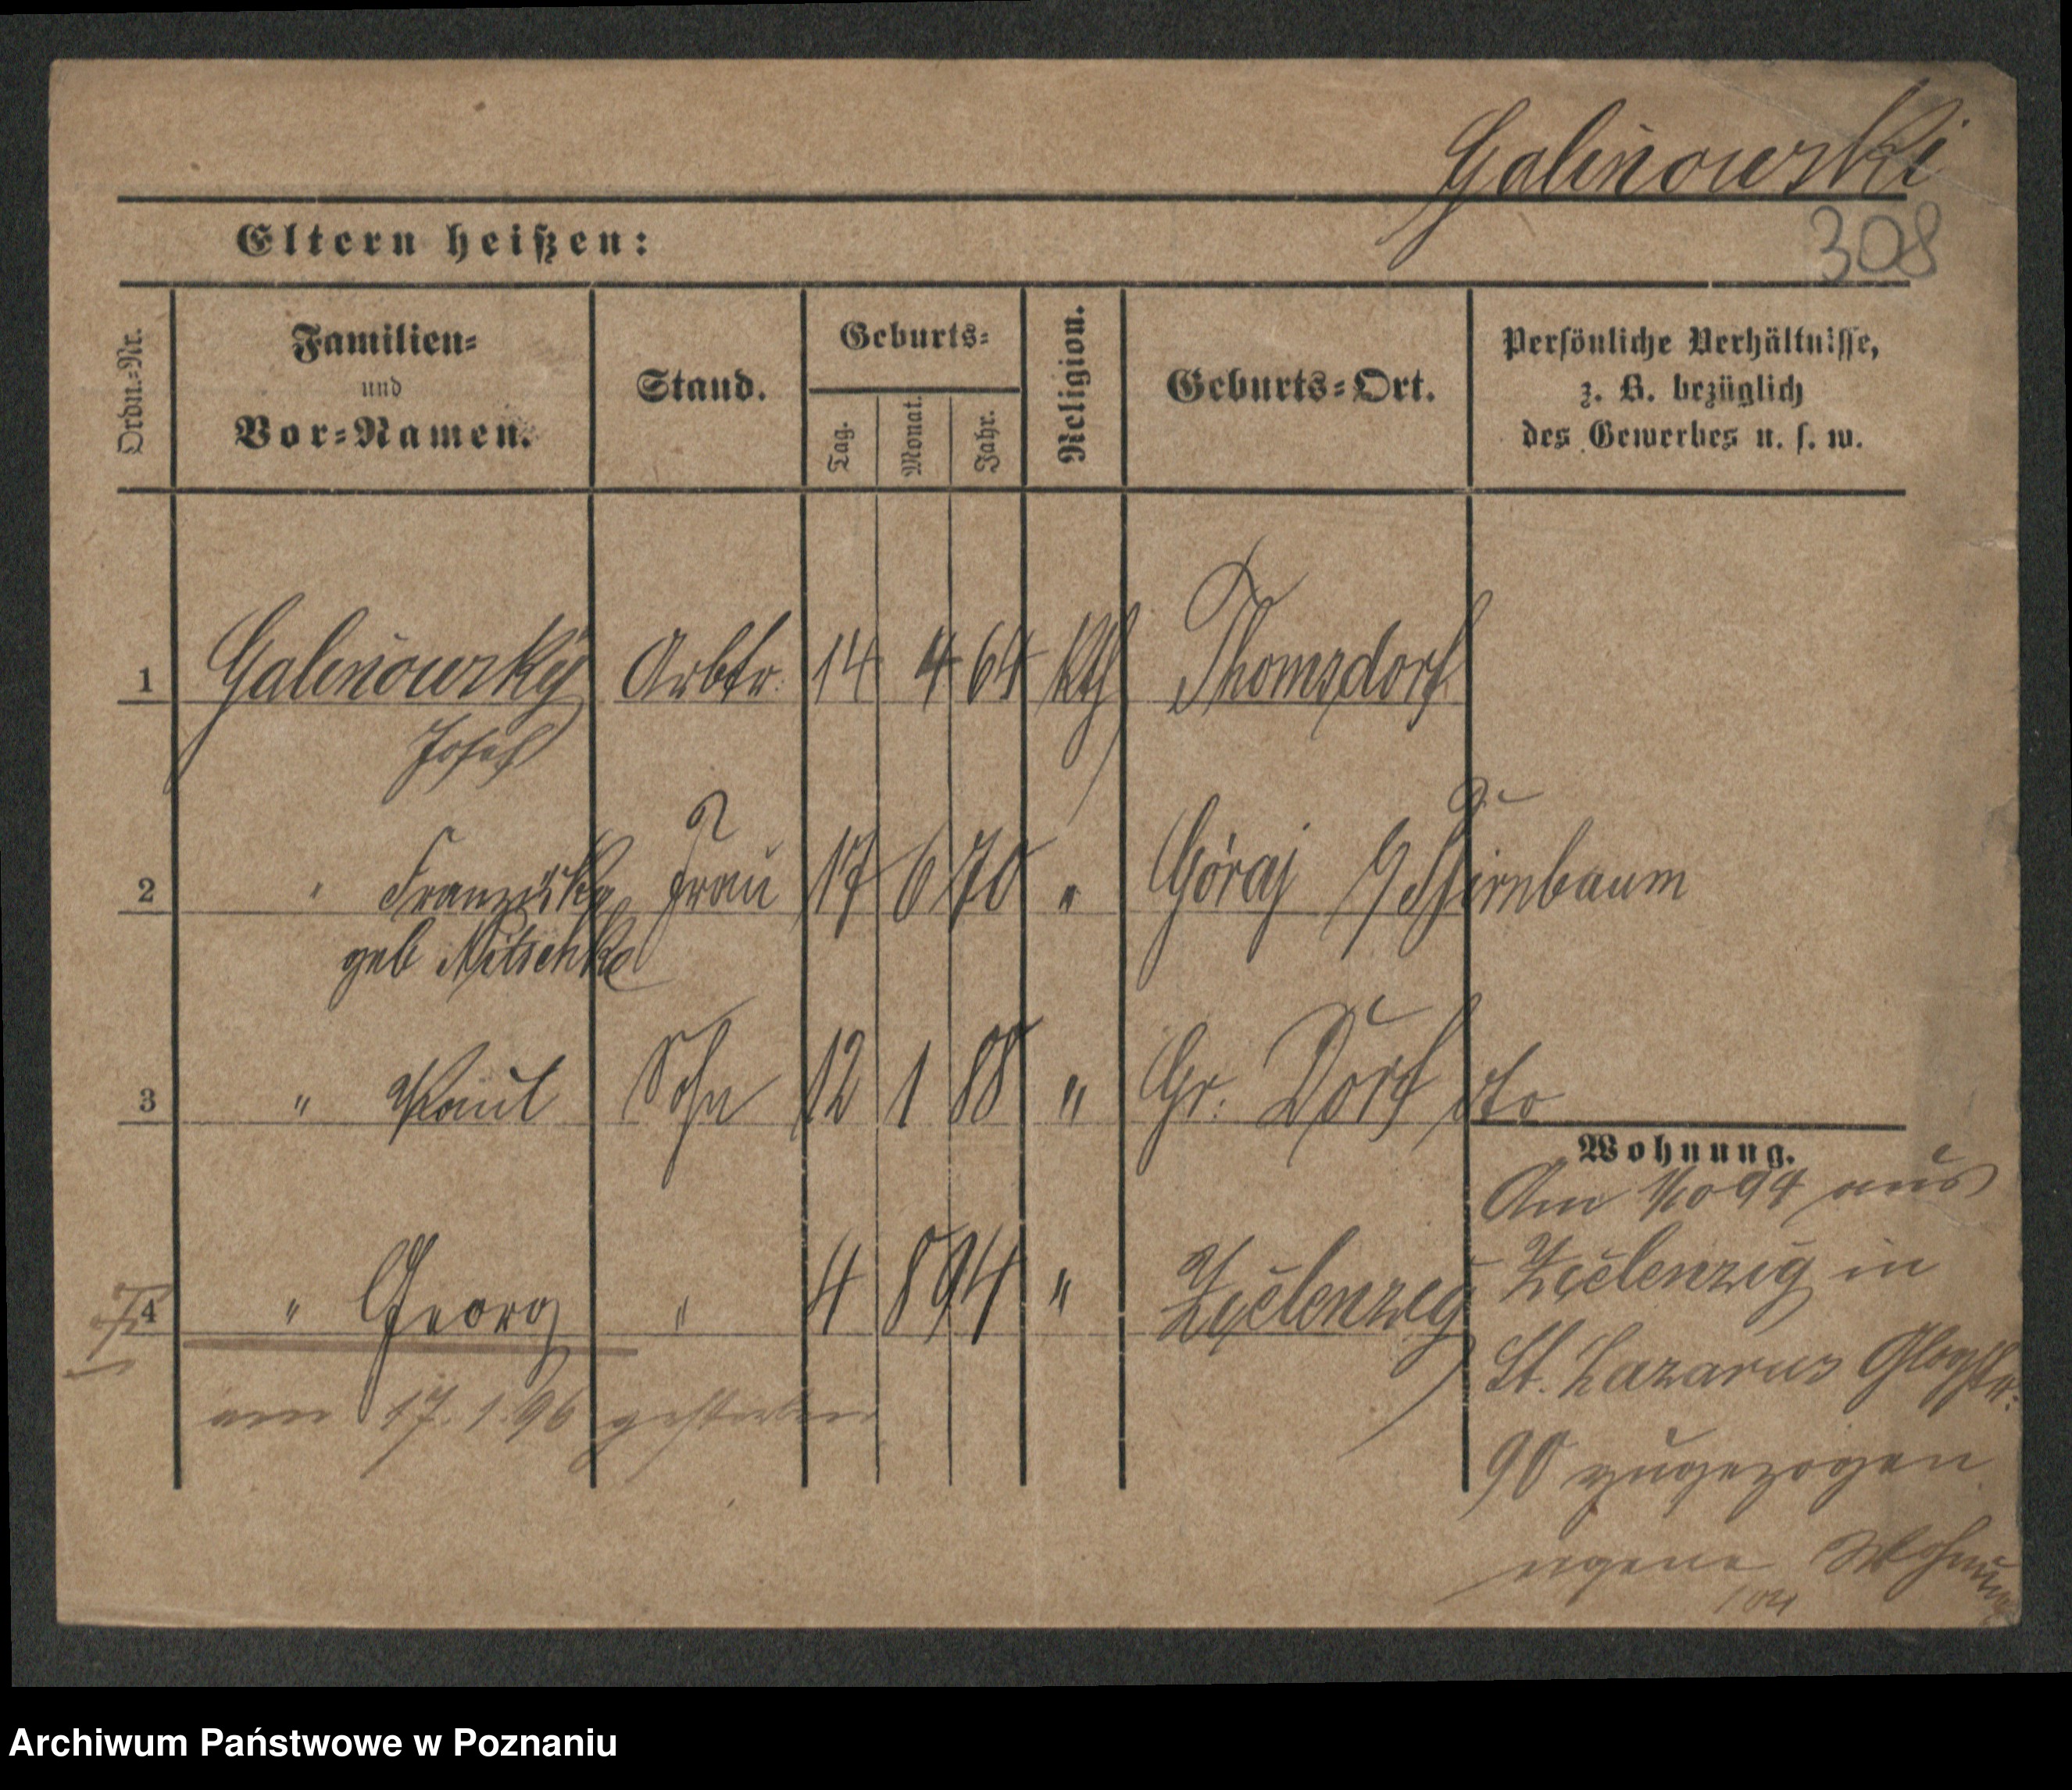 Galinowski
308
Eltern heißen:
Ordn.-Nr.
Familien-
und
Vor-Namen.
Stand.
Geburts-
Tag.
Monat.
Jahr.
Religion.
Geburts-Ort.
Persönliche Verhältnisse,
z. B. bezüglich
des Gewerbes u. s. w.
1 Galinowsky Arbtr. 14 4 64 kth Thomsdorf
Josef
2 " Franziska Frau 17 6 70 " Góraj Birnbaum
geb Nitschke
3 " Paul Sohn 12 1 88 " Gr. Dorf dto
Wohnung.
Am 1/10 94 aus
4 " Georg " 4 8 94 " Zielenzig
Zielenzig in
St. Lazarus Glogstr.
am 17.1.96 gestorben
90 zugezogen
eigene Wohnung
Archiwum Państwowe w Poznaniu